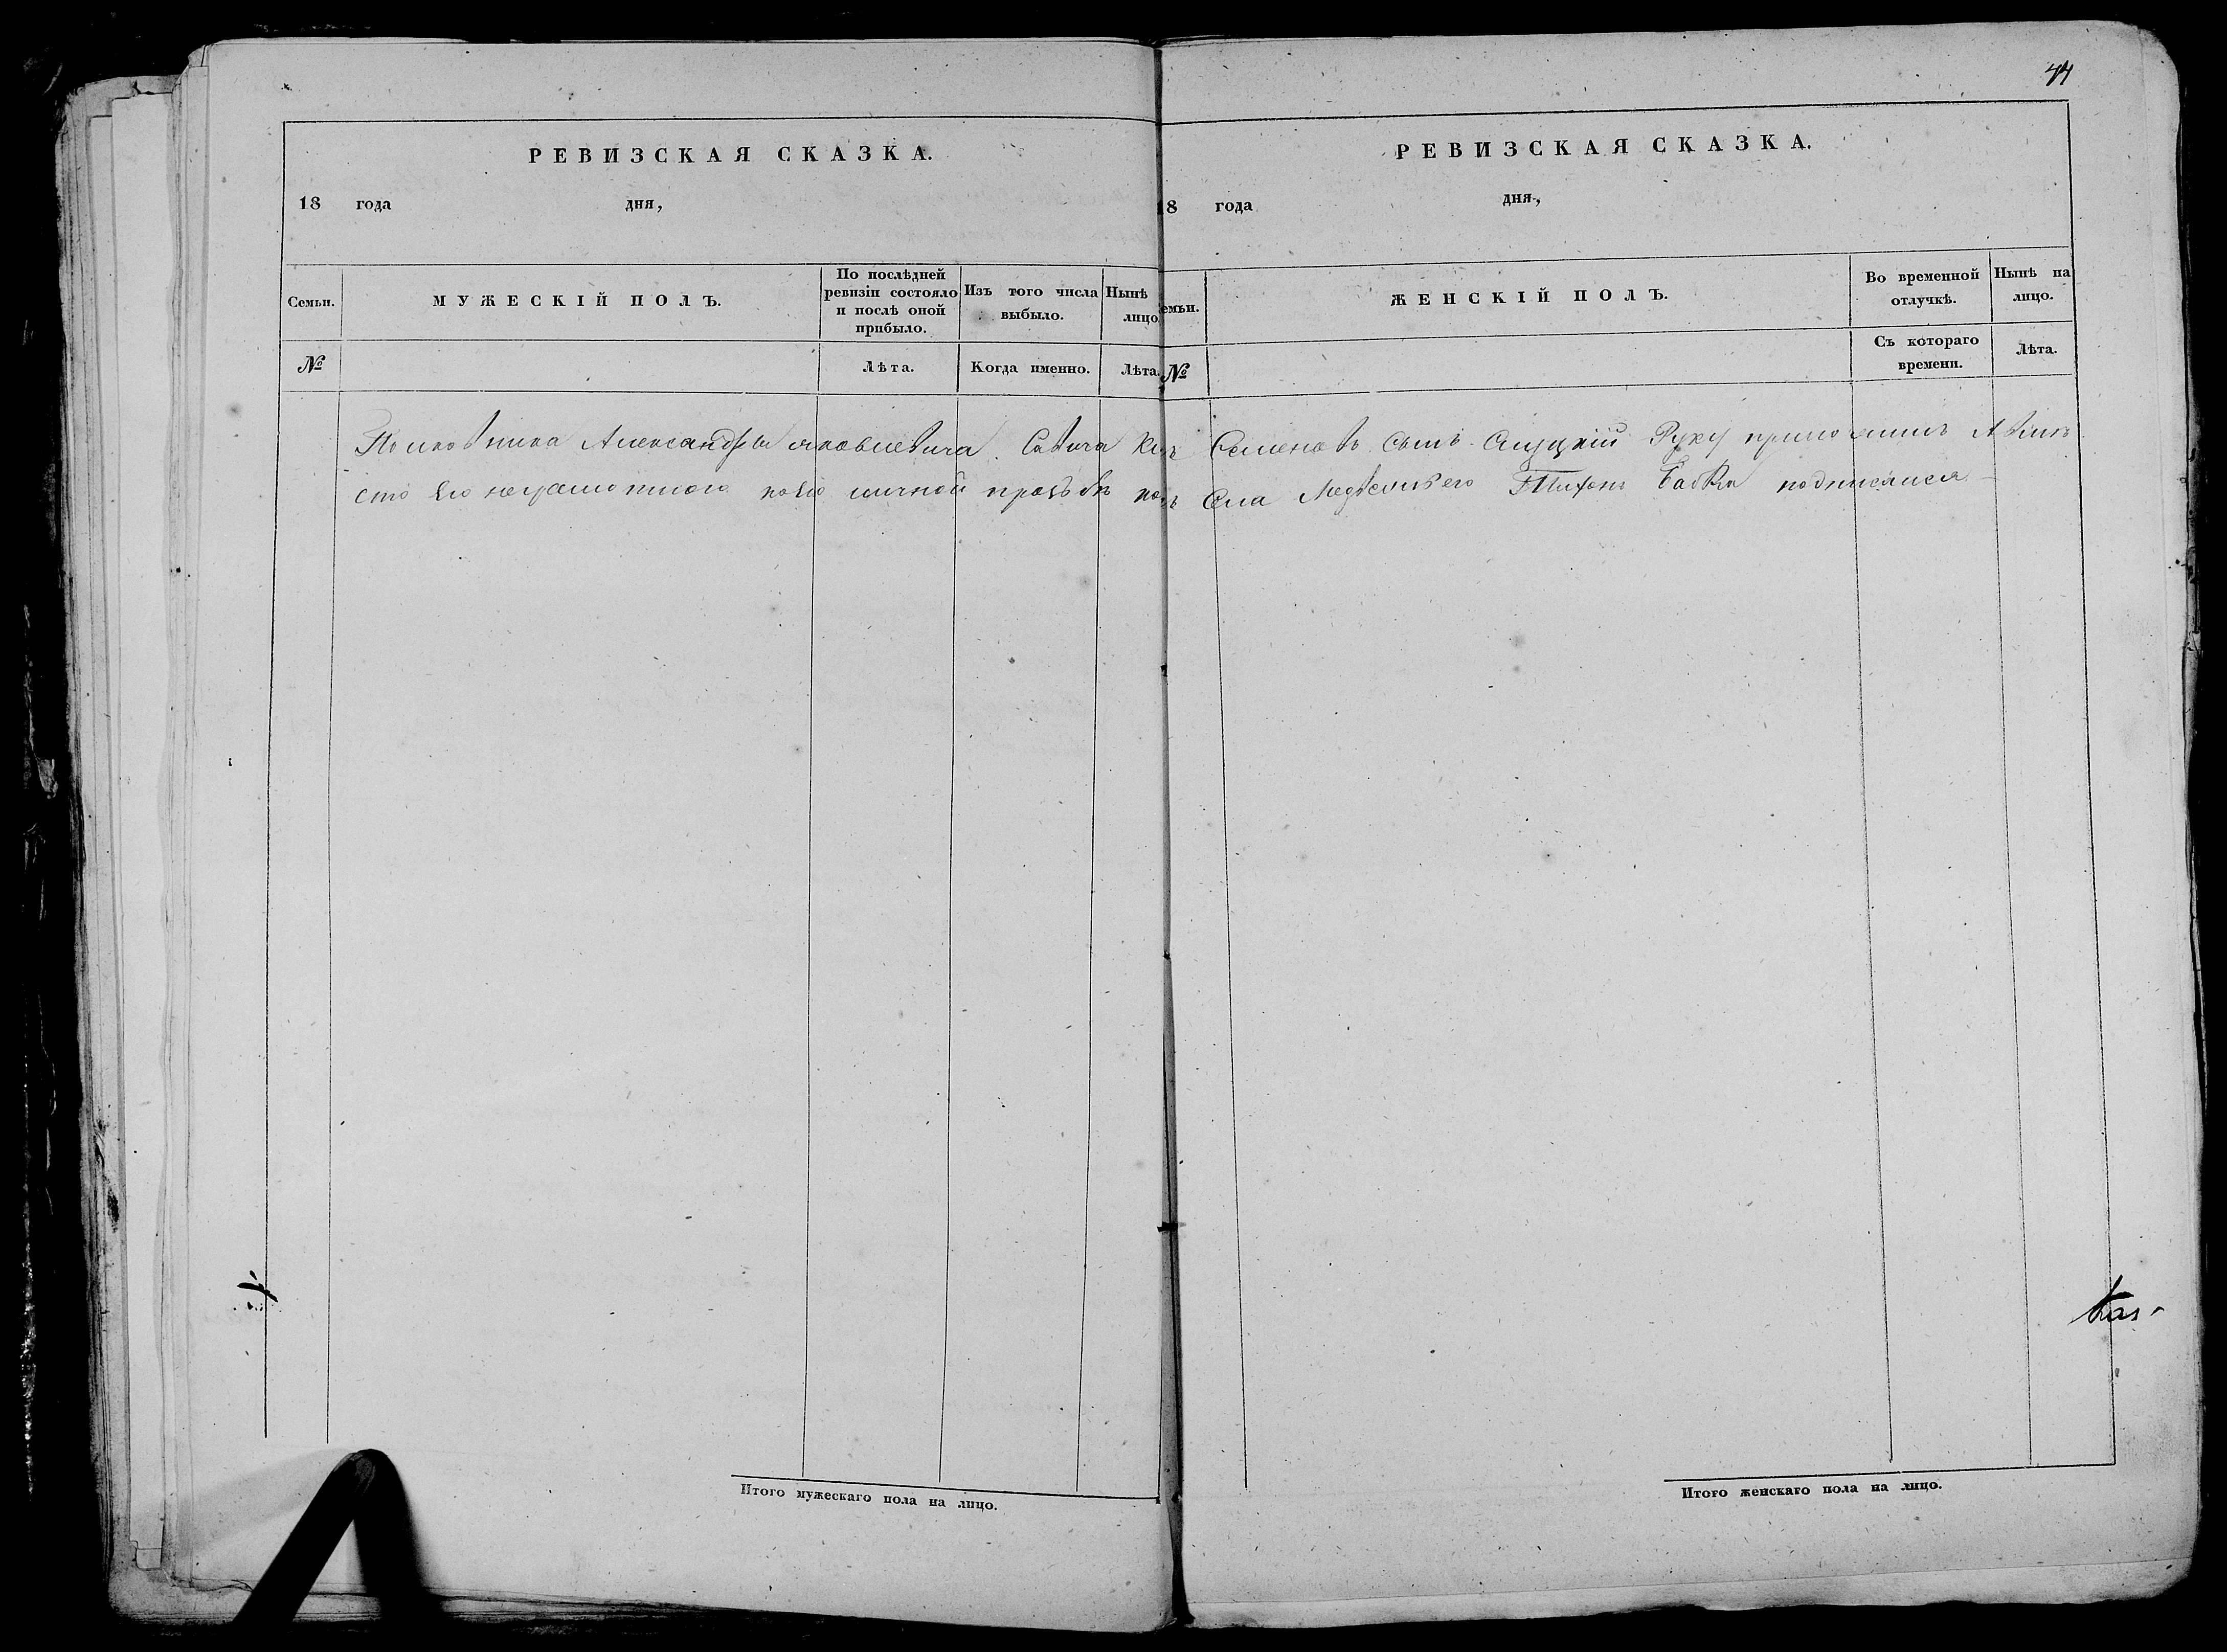 44
РЕВИЗСКАЯ СКАЗКА.
18 года дня,
Семьи.
МУЖЕСКІЙ ПОЛЪ.
По послѣдней ревизіи состояло и послѣ оной прибыло.
Изъ того числа выбыло.
Нынѣ лицо.
№
Лѣта.
Когда именно.
Лѣта.
Полковника Александра яковлевича Савича
сто Его неграмотного по Его личной прозьбѣ
Итого мужескаго пола на лицо.
РЕВИЗСКАЯ СКАЗКА.
8 года дня,
емьи.
ЖЕНСКІЙ ПОЛЪ.
Во временной отлучкѣ.
Нынѣ на лицо.
№
Съ котораго времени.
Лѣта.
Семеновъ сынъ Слуцкій Руку приложилъ
Села Тихонъ Бабка подписался
Итого женскаго пола на лицо.